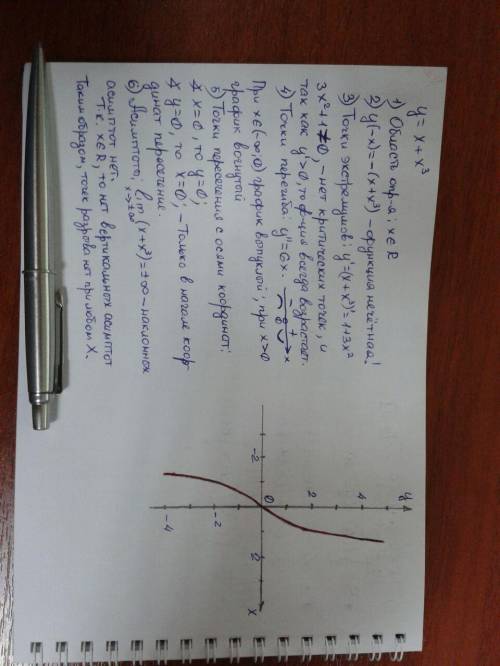 y = x + x³
1) Область опр-я: x∈R
2) y(-x) = -(x+x³) - функция нечётная!
3) Точки экстремумов: y' = (x+x³)' = 1+3x²
3x²+1≠0, - нет критических точек, и
так как y'>0, то ф-ция всегда возрастает.
4) Точки перегиба: y'' = 6x. - 0 + x
При x∈(-∞,0) график выпуклой; при x>0
график вогнутой
5) Точки пересечения с осями координат:
x=0, то y=0;
y=0, то x=0; - Только в начале коор-
динат пересечение.
6) Асимптота: lim x→±∞ (x+x³) = ±∞ - наклонных
асимптот нет.
Т.к. x∈R, то нет вертикальных асимптот
Таким образом, точек разрыва нет при любом X.
y
4
2
-2 0 2 x
-2
-4